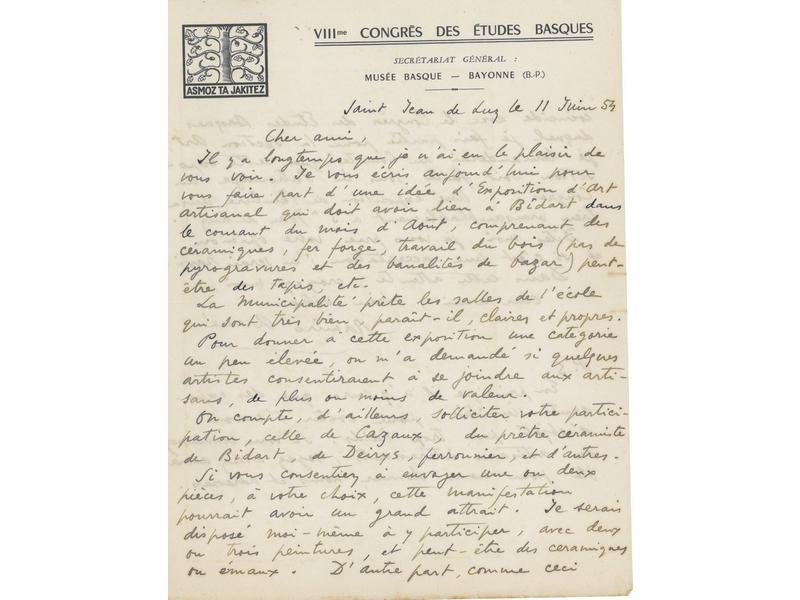 VIIIme CONGRÈS DES ÉTUDES BASQUES
SECRÉTARIAT GÉNÉRAL :
MUSÉE BASQUE — BAYONNE (B.-P.)
ASMOZ TA JAKITEZ
Saint Jean de Luz le 11 Juin 54
Cher ami,
Il y a longtemps que je n'ai eu le plaisir de
vous voir. Je vous écris aujourd'hui pour
vous faire part d'une idée d'Exposition d'Art
artisanal qui doit avoir lieu à Bidart dans
le courant du mois d'Aout, comprenant des
céramiques, fer forgé, travail du bois (pas de
pyrogravures et des banalités de bazar) peut-
être des tapis, etc.
La Municipalité prête les salles de l'école
qui sont très bien, paraît-il, claires et propres.
Pour donner à cette exposition une catégorie
un peu élevée, on m'a demandé si quelques
artistes consentiraient à se joindre aux arti-
sans, de plus ou moins de valeur.
On compte, d'ailleurs, solliciter votre partici-
pation, celle de Cazaux, du prêtre céramiste
de Bidart, de Deirys, ferronnier, et d'autres.
Si vous consentiez à envoyer une ou deux
pièces, à votre choix, cette manifestation
pourrait avoir un grand attrait. Je serais
disposé moi-même à y participer, avec deux
ou trois peintures, et peut-être des céramiques
ou émaux. D'autre part, comme ceci